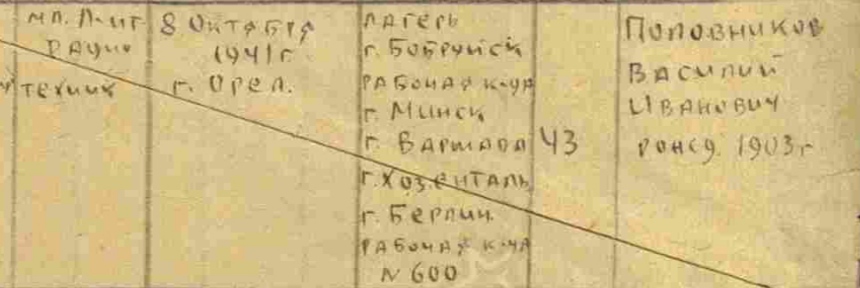 мл. л-нт
радио
техник
8 Октября
1941 г.
г. Орел.
лагерь
г. Бобруйск
рабочая к-да
г. Минск
г. Варшава
г. Хозенталь
г. Берлин.
рабочая к-да
N 600
43
Половников
Василий
Иванович
рожд. 1903 г